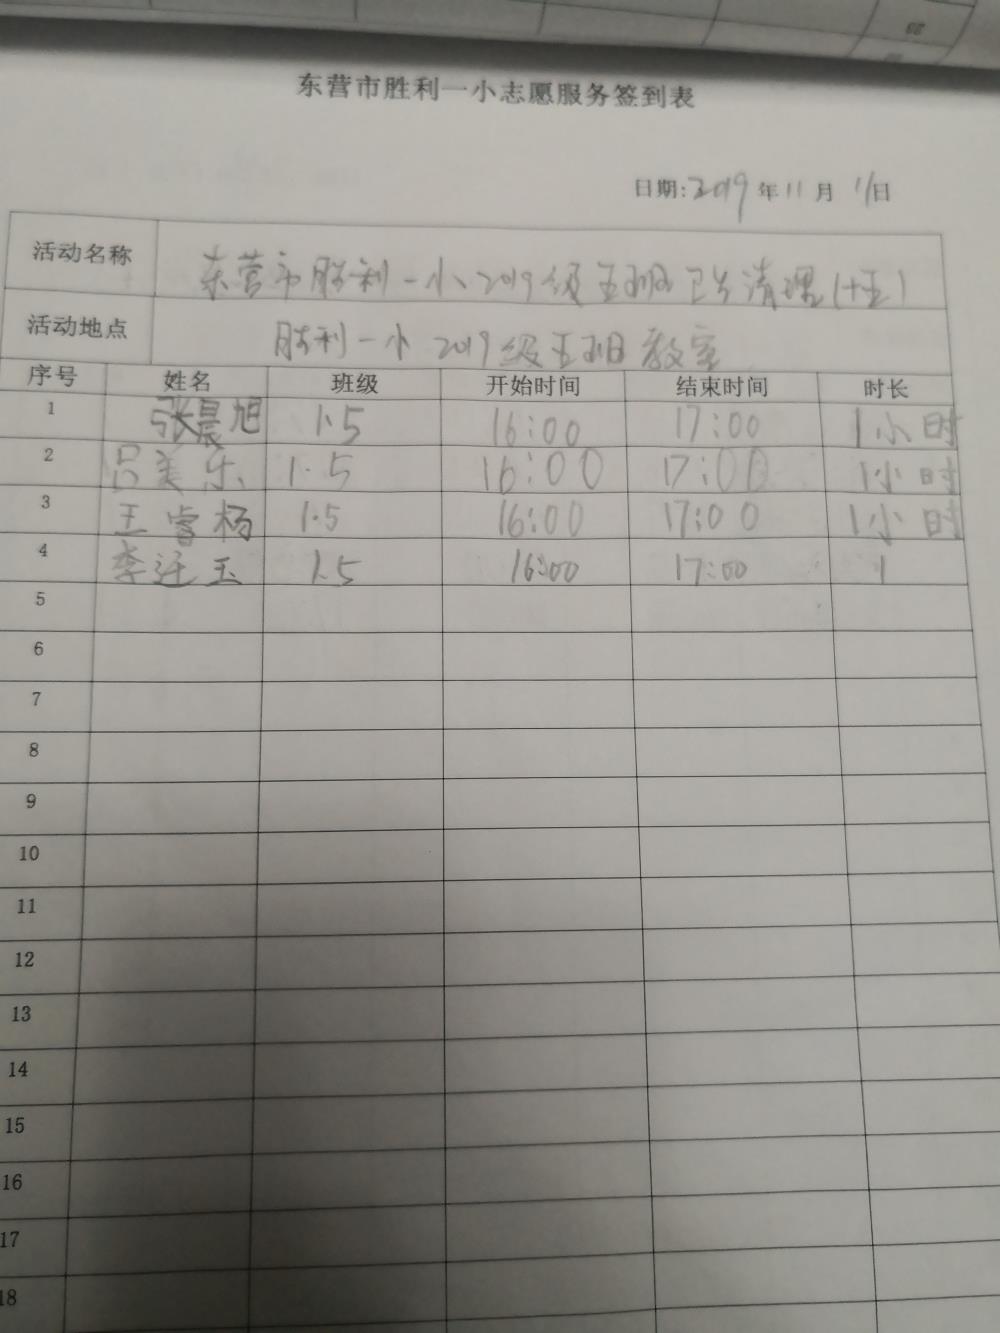 东营市胜利一小志愿服务签到表
日期:2019年11月11日
活动名称 东营市胜利一小2019级五班卫生清理(十五)
活动地点 胜利一小2019级五班教室
序号 姓名 班级 开始时间 结束时间 时长
1 张晨旭 1.5 16:00 17:00 1小时
2 吕美乐 1.5 16:00 17:00 1小时
3 王睿杨 1.5 16:00 17:00 1小时
4 李迁玉 1.5 16:00 17:00 1
5
6
7
8
9
10
11
12
13
14
15
16
17
18